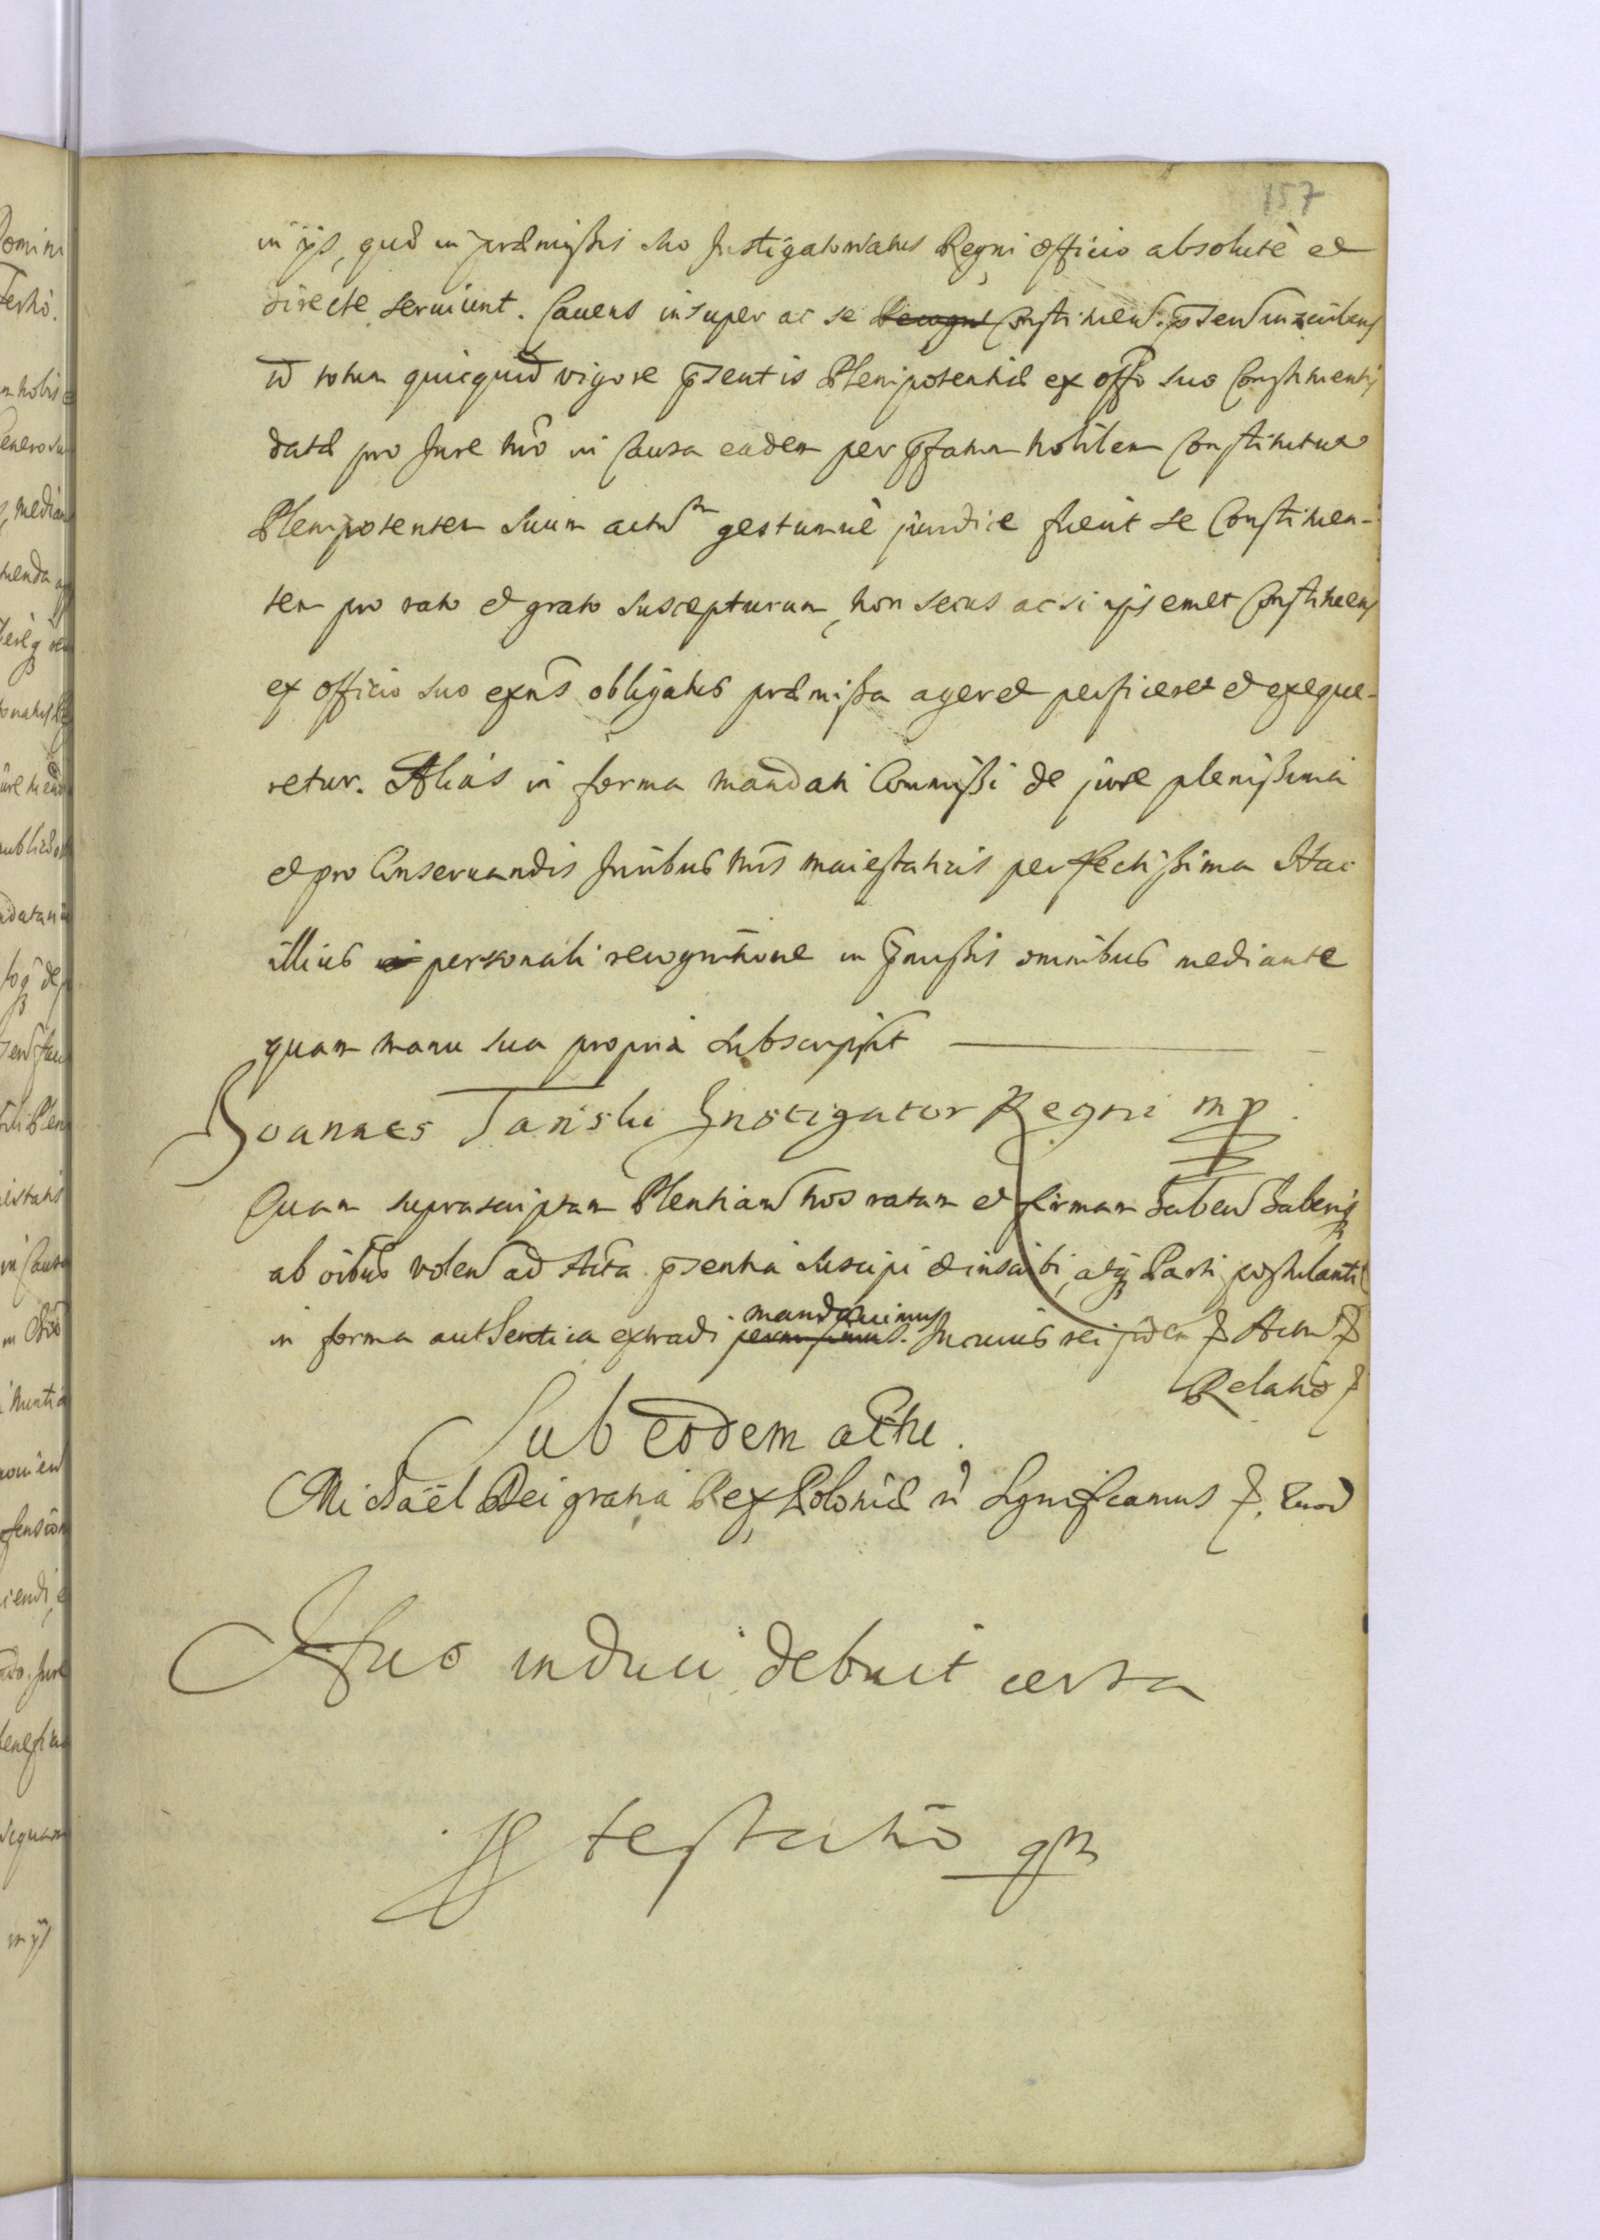 157
in ijs, quæ in præmissis suo Instigatoriatus Regni officio absolutè et
directe seruiunt. Cauens insuper ac se Constituen. p̄sen inscribens
id totum quicquid vigore p̄sentis Plenipotentiæ ex offo suo Constituentis
datæ pro Jure nr̄o in Causa eadem per p̄fatum nobilem Constitutum
Plenipotentem suum actum gestumuè juridice fuerit se Constituen-
tem pro rato et grato suscepturum, non secus ac si ipsemet Constituens
ex officio suo exn̄s obligatus præmissa ageret perficeret et exeque-
retur. Aliàs in forma mandati Commissi de jure plenissima
et pro Conseruandis Juribus nr̄is maiestaticis perfectissima Hac
illius personali recognitione in p̄missis omnibus mediante
quam manu sua propria subscripsit
Joannes Tański Instigator Regni mp
Quam suprascriptam Plentiam nos ratam et firmam haben haberiq
ab oībus volen ad Acta p̄sentia suscipi et inscribi, atq Parti postulanti
in forma authentica extradi permisimus. mandauimus In cuius rei fidem p Actum p
Relatio p
Sub eodem actu.
Michaël Dei gratia Rex Poloniæ &c Significamus p. Quod
Huc induci debuit certa
Ptestatio qm